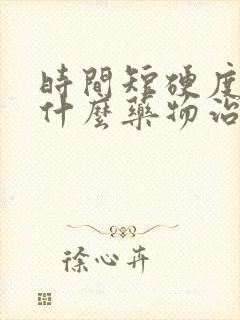 時間短硬度
什麼藥物治
徐心卉